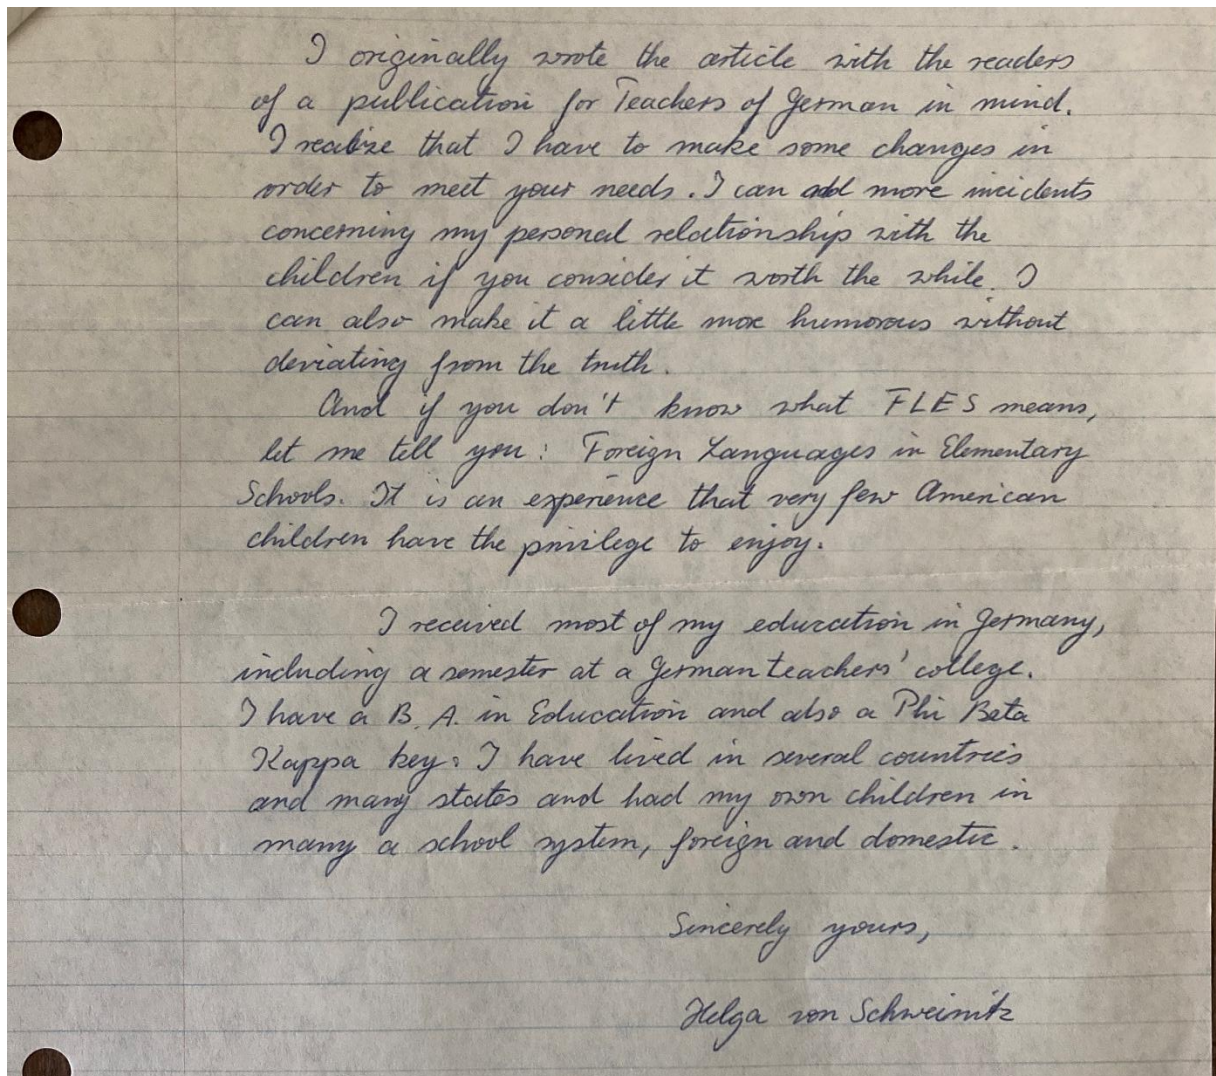 I originally wrote the article with the readers
of a publication for Teachers of German in mind.
I realize that I have to make some changes in
order to meet your needs. I can add more incidents
concerning my personal relationship with the
children if you consider it worth the while. I
can also make it a little more humorous without
deviating from the truth.
And if you don't know what FLES means,
let me tell you: Foreign Languages in Elementary
Schools. It is an experience that very few American
children have the privilege to enjoy.
I received most of my education in Germany,
including a semester at a German teachers' college.
I have a B.A. in Education and also a Phi Beta
Kappa key. I have lived in several countries
and many states and had my own children in
many a school system, foreign and domestic.
Sincerely yours,
Helga von Schweinitz